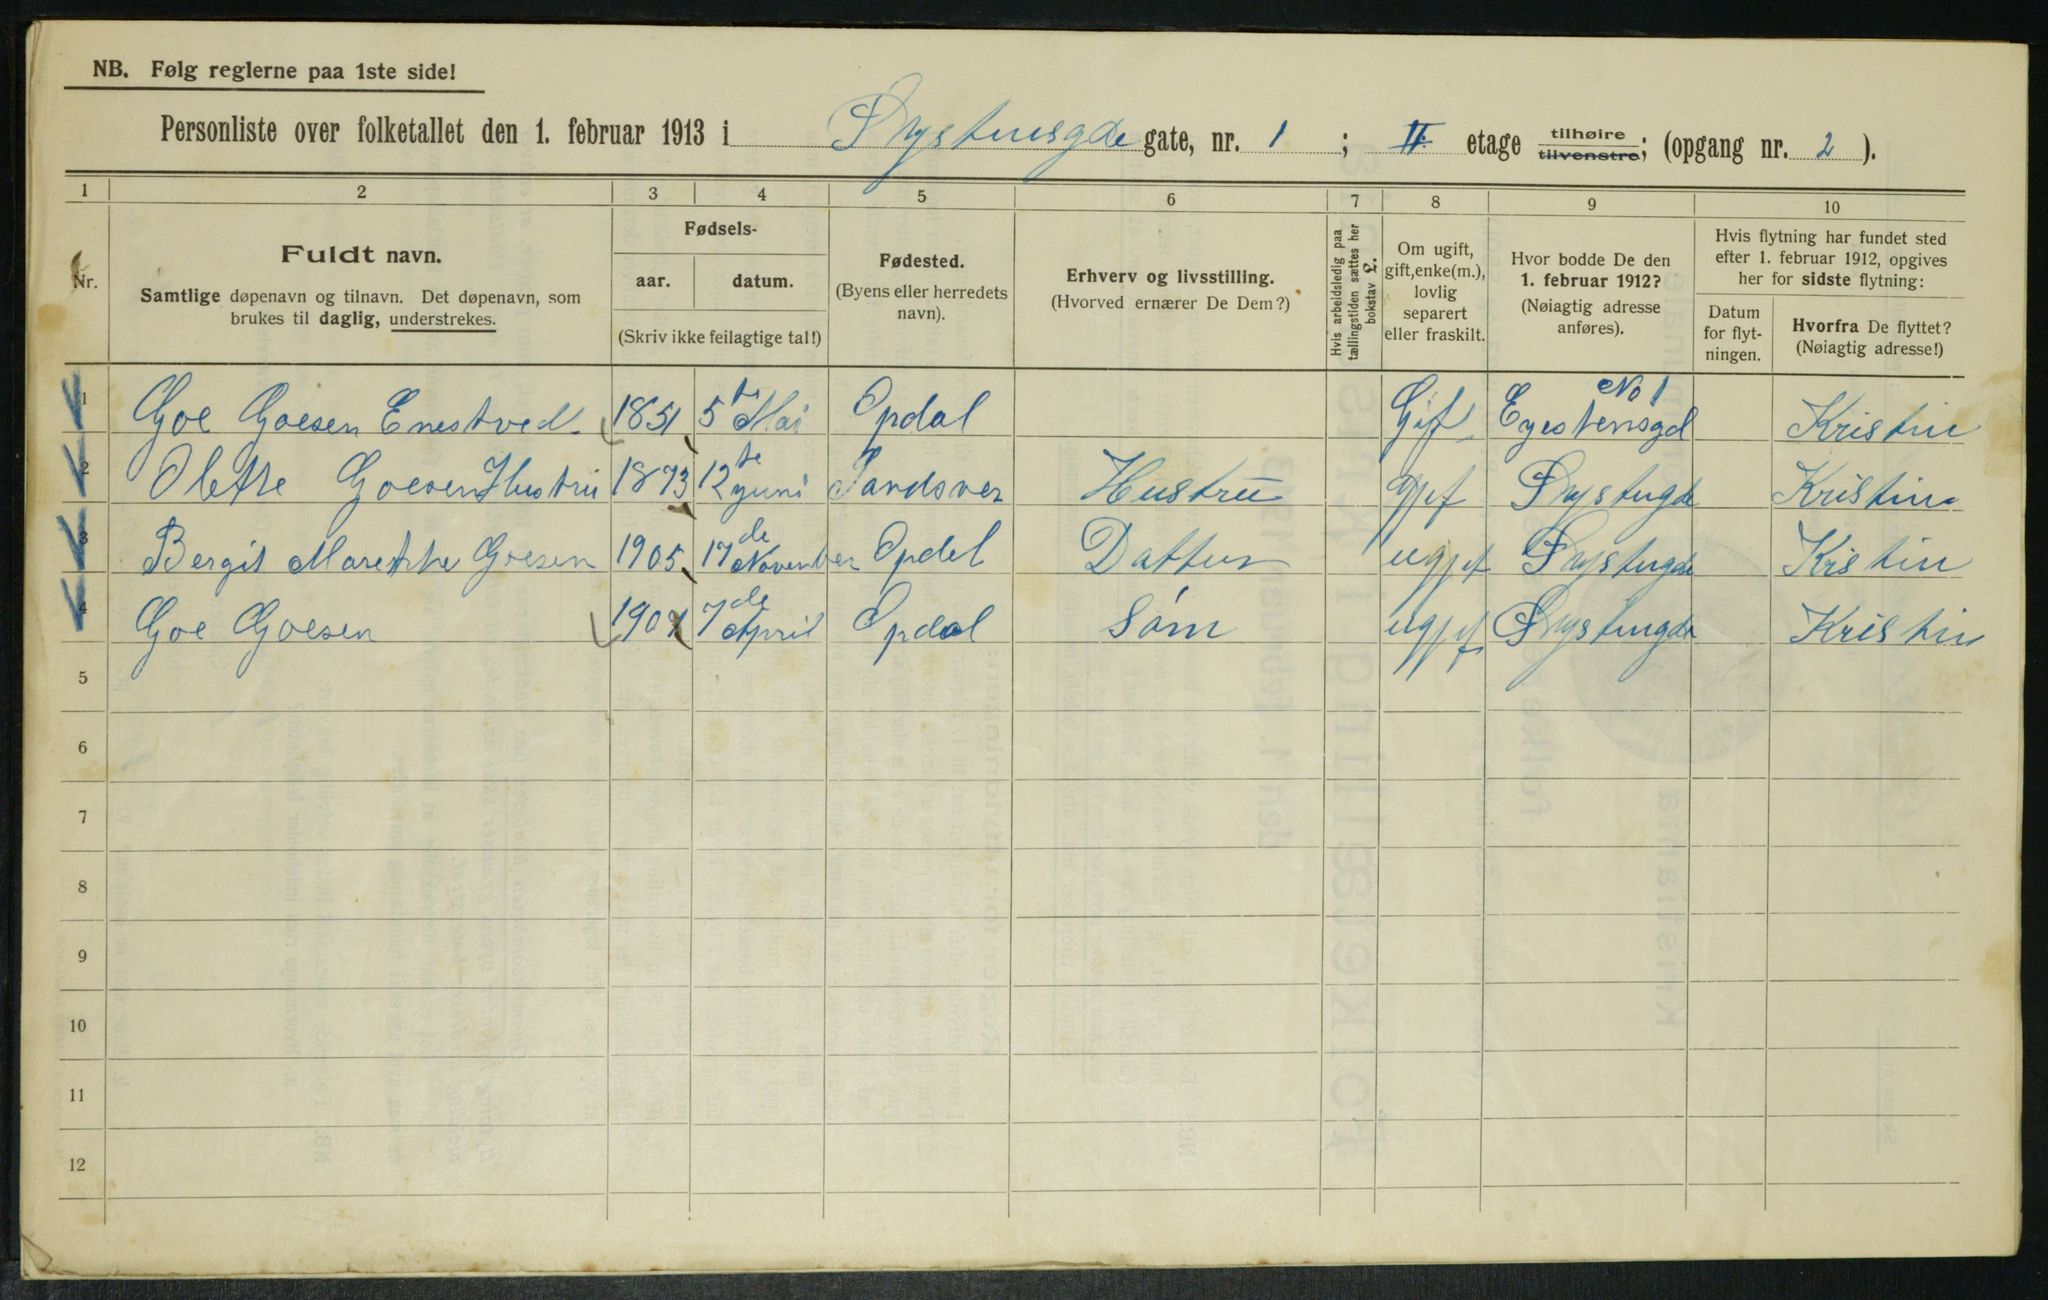 NB. Følg reglerne paa 1ste side!
Personliste over folketallet den 1. februar 1913 i gate, nr. 1 ; II. etage tilhøire tilvenstre; (opgang nr. 2 ).
1 2 3 4 5 6 7 8 9 10
Nr.
Fuldt navn.
Samtlige døpenavn og tilnavn. Det døpenavn, som
brukes til daglig, understrekes.
Fødsels-
aar. datum.
(Skriv ikke feilagtige tal!)
Fødested.
(Byens eller herredets
navn).
Erhverv og livsstilling.
(Hvorved ernærer De Dem?)
Hvis arbeidsledig paa
tællingstiden sættes her
bokstav L.
Om ugift,
gift, enke(m.),
lovlig
separert
eller fraskilt.
Hvor bodde De den
1. februar 1912?
(Nøiagtig adresse
anføres).
Hvis flytning har fundet sted
efter 1. februar 1912, opgives
her for sidste flytning:
Datum
for flyt-
ningen.
Hvorfra De flyttet?
(Nøiagtig adresse!)
1 Goe Goesen Enestved 1851 5te Mai Opdal Gif No 1 Kristin
2 Olette Goesen Hustru 1873 12te Juni Sandsver Hustru gif Kristin
3 Bergit Marethe Goesen 1905 17de November Opdel Datter ugif Kristin
4 Goe Goesen 7de April Opdal Søm ugif Kristin
5
6
7
8
9
10
11
12